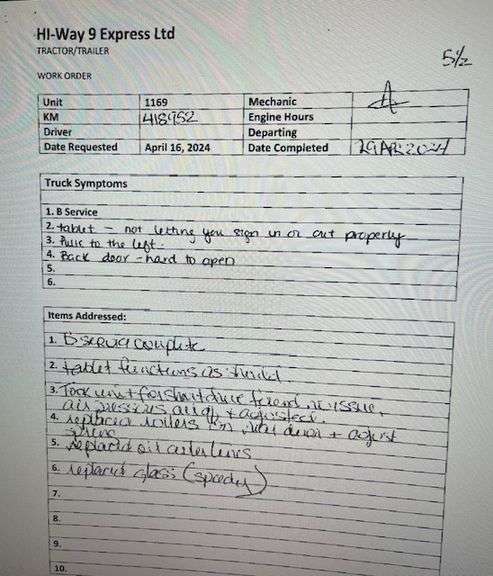 HI-Way 9 Express Ltd
TRACTOR/TRAILER
5 1/2
WORK ORDER
Unit 1169 Mechanic A
KM 418952 Engine Hours
Driver Departing
Date Requested April 16, 2024 Date Completed 29 APR 2024
Truck Symptoms
1. B Service
2. tablet - not letting you sign in or out properly
3. Pulls to the left.
4. Back door - hard to open
5.
6.
Items Addressed:
1. B service complete
2. tablet functions as should
3. Took unit for short drive found no issue,
air pressures and + adjusted.
4. replaced rollers on rear door + adjust
spring
5. replaced oil cooler lines
6. replaced glass (speedy)
7.
8.
9.
10.